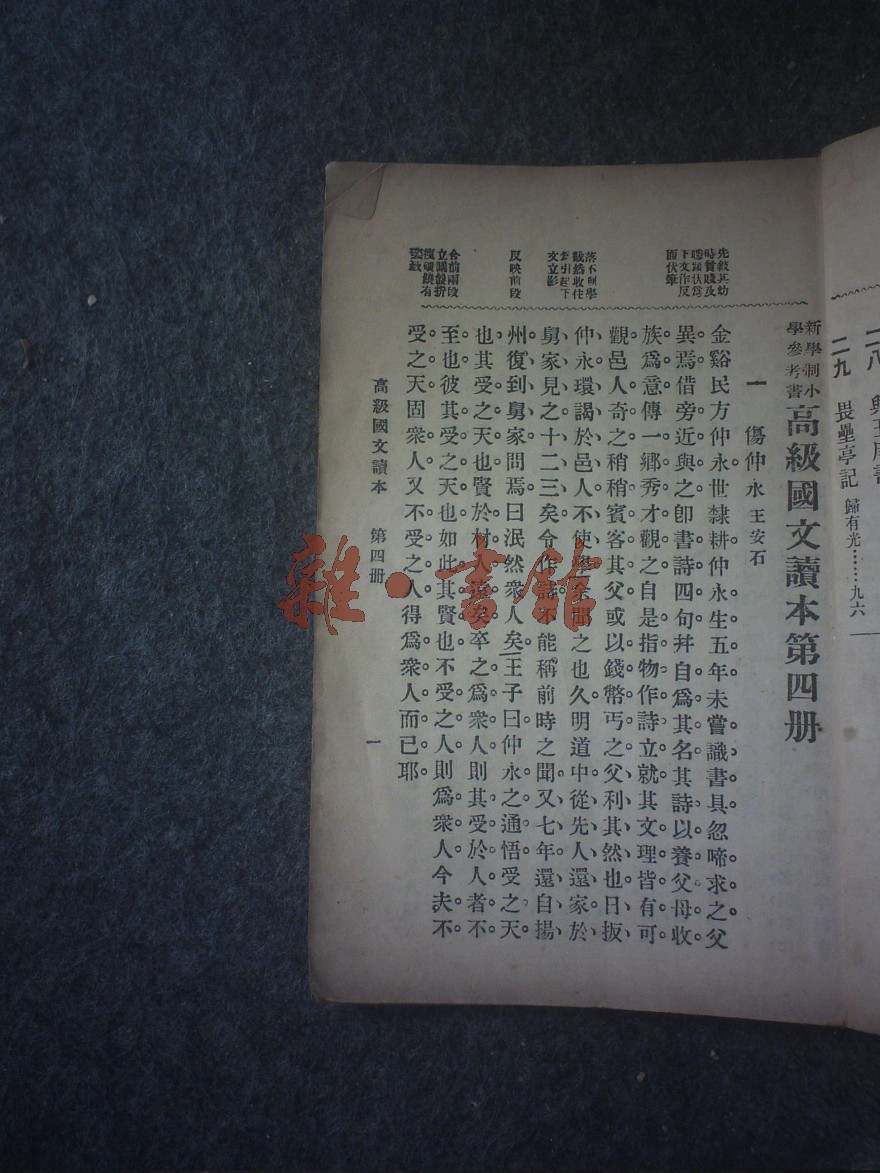 二九 畏壘亭記 歸有光……九六
新學制小
學參考書
高級國文讀本第四册
一 傷仲永 王安石
金谿民方仲永世隸耕仲永生五年未嘗識書具忽啼求之父
異焉借旁近與之卽書詩四句幷自爲其名其詩以養父母收
族爲意傳一鄉秀才觀之自是指物作詩立就其文理皆有可
觀邑人奇之稍稍賓客其父或以錢幣丐之父利其然也日扳
仲永環謁於邑人不使學余聞之也久明道中從先人還家於
舅家見之十二三矣令作詩不能稱前時之聞又七年還自揚
州復到舅家問焉曰泯然衆人矣王子曰仲永之通悟受之天
也其受之天也賢於材人遠矣卒之爲衆人則其受於人者不
至也彼其受之天也如此其賢也不受之人則爲衆人今夫不
受之天固衆人又不受之人得爲衆人而已耶
先敍其幼
時貧賤及
下文作反
面伏筆
反映前段
合前兩段
高級國文讀本 第四册
一
雜·書館